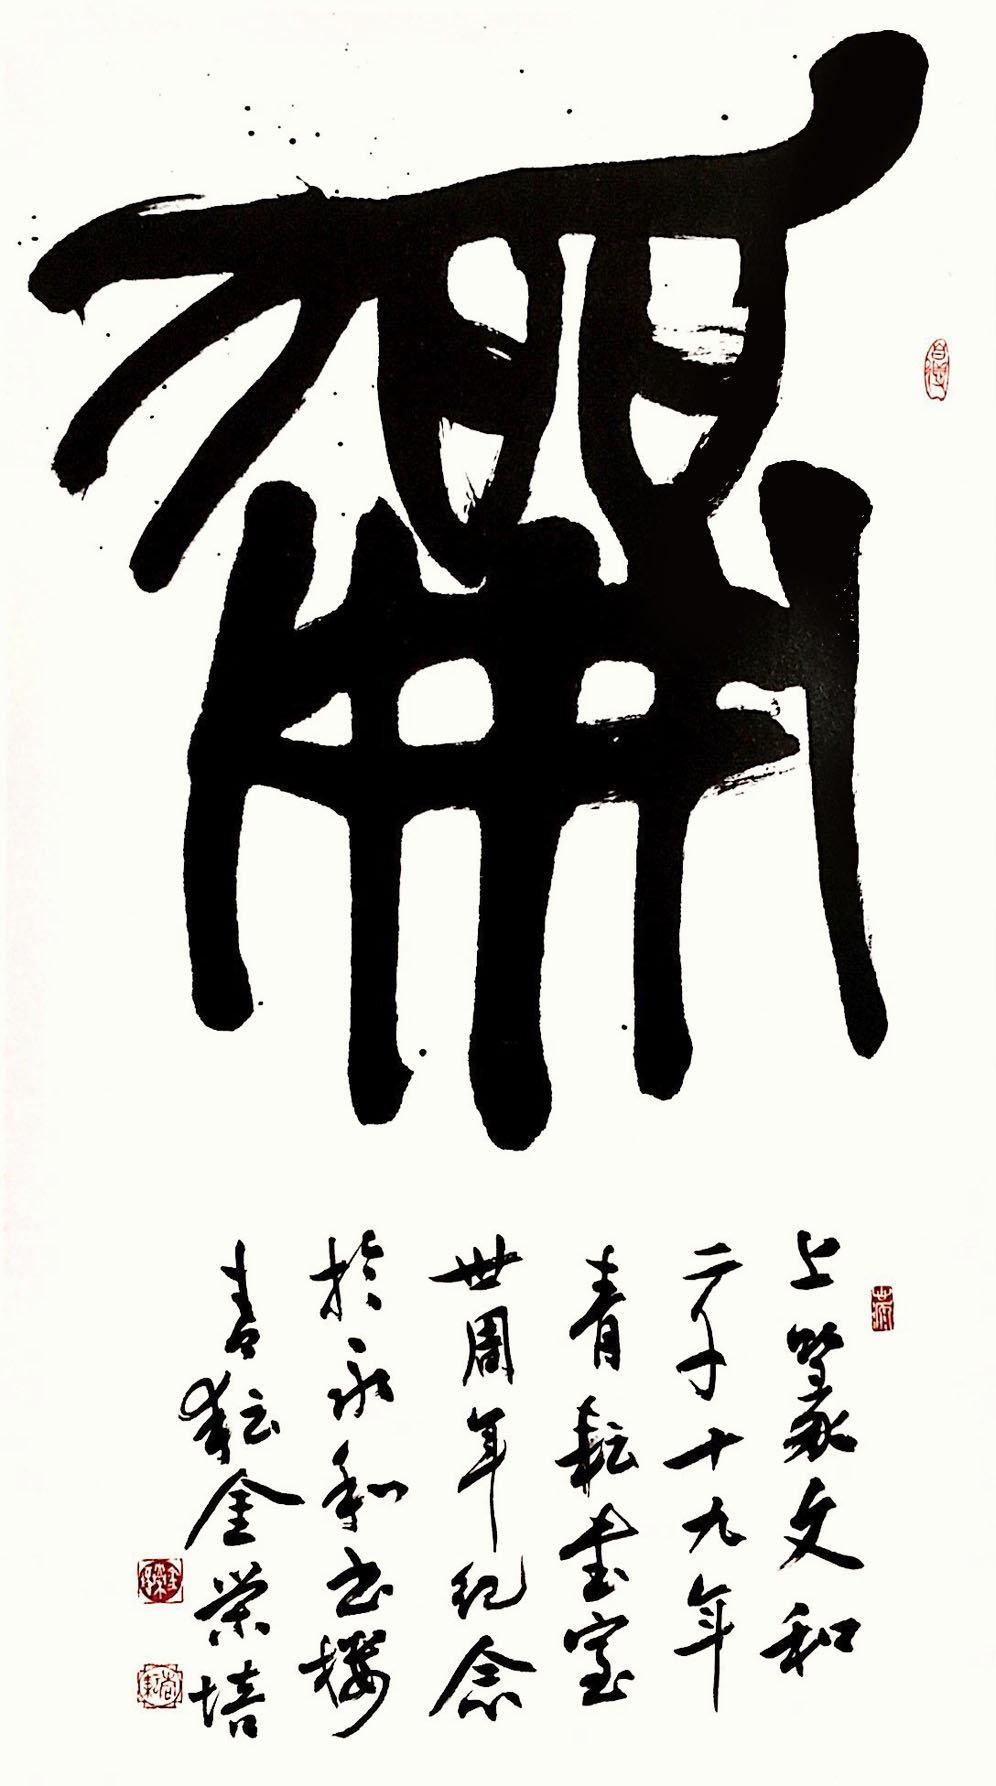 龢
上篆文和
二千十九年
青耘書室
丗周年紀念
於永和書樓
青耘金榮培